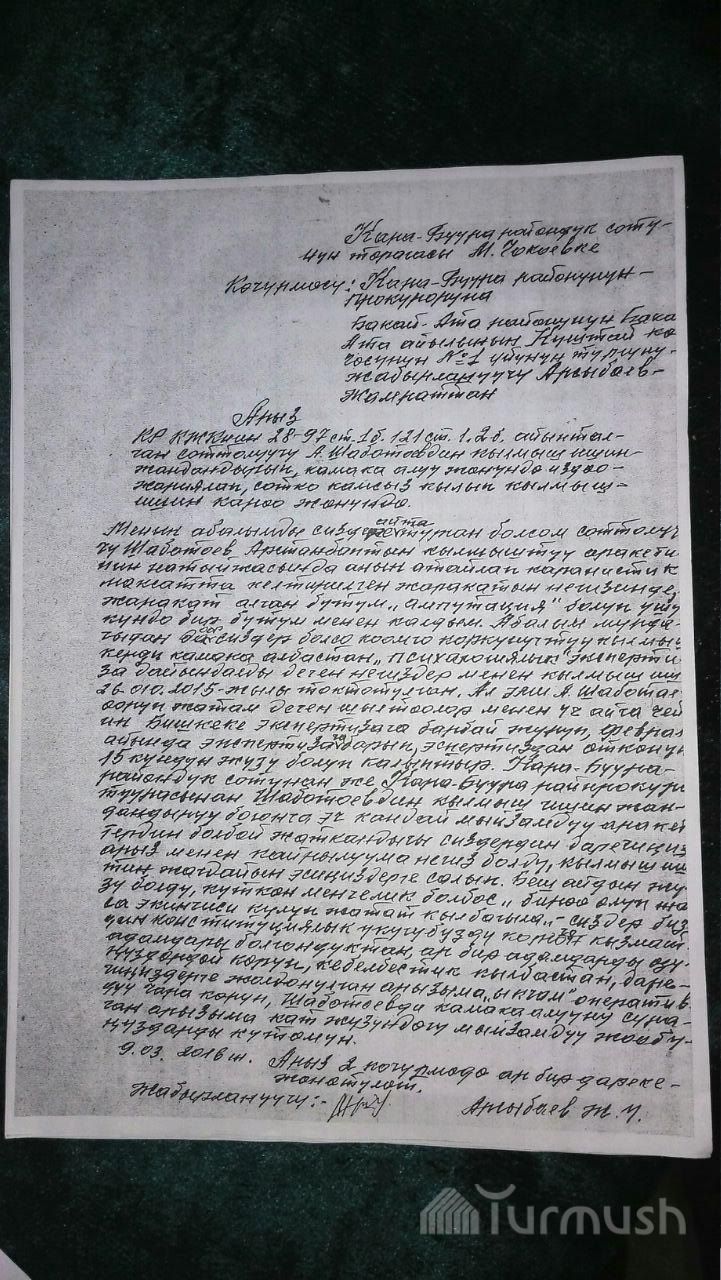 Кара-Буура райондук соту-
нун торагасы М. Чокоевке
Кочурмосу: Кара-Буура районунун-
прокуроруна
Бакай-Ата районунун Бака
Ата айылынын Куштай ко
чосунун №1 уйунун тургуну-
жабырлануучу Арыбаев-
Жамраттан
Арыз
КР КЖКнин 28-97 ст. 1б. 121 ст. 1.2 б. айыптал-
ган соттолуучу А. Шаботоевдин кылмыш ишин-
жандандырып, камака алуу жонундо издоо-
жарыялап, сотко камсыз кылып кылмыш-
ишин кароо жонундо.
Менин абалымды сиздерге айта турган болсом соттолуу
чу Шаботоев Арстанбаптын кылмыштуу аракети
нин натыйжасында анын атайлап
максатта келтирилген жаракатын негизинде,
жаракат алган бутум "ампутация" болуп ушу
кундо бир бутум менен калдым. Абалым мунда
чыдан сиздер болсо коомго коркунучтуу кылмыш
керди камака албастан, "психакошялык" эксперти
за дайындалды деген негиздер менен кылмыш иш
26.010.2015-жылы токтотулган. Ал эми А. Шаботое
ооруп жатам деген шылтоолор менен уч айга чей
ин Бишкеке экспертизага барбай журуп, феврал
айында экспертизага барып, эспертиздан откону
15 кундун жузу болуп калыптыр. Кара-Буура-
райондук сотунан же Кара-Буура райпрокура
туурасынан Шаботоевдин кылмыш ишин жан-
дандыруу боюнча эч кандай мыйзамдуу араке
тердин болбой жаткандыгы сиздердин дарегиңиз
арыз менен кайрылуума негиз болду, кылмыш иш
тин жагдайын эсиңиздерге салып. Беш айдын жу
зу болду, куткон менчелик болбос "бироо олуп жа
са экинчиси кулуп жатат кылбагыла",- сиздер биз
дин конституциялык укугубузду коргооч кызмат
адамдары болгондуктан, ар бир адамдарды озу
ңуздордой коруп, кебелбестик кылбастан, даре-
гиңиздерге жолдонулган арызыма, "ыкчам" оператив
дуу чара коруп, Шаботоевди камака алууну сура-
ган арызыма кат жузундогу мыйзамдуу жообу-
ңуздарды кутомун.
9.03. 2016 ж. Арыз 2 кочурмодо ар бир дареке-
жонотулот.
Жабырлануучу:- Арыбаев Ж. У.
Turmush